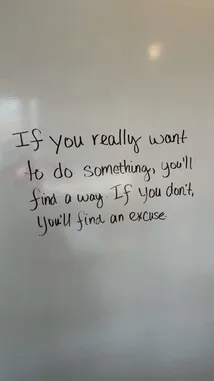 If you really want
to do something, you'll
find a way. If you don't,
you'll find an excuse.